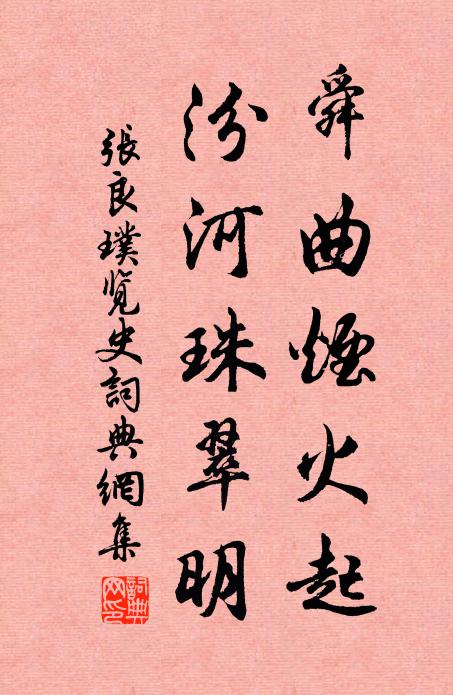 舜曲煙火起
汾河珠翠明
張良璞覽史詞典網集
詞典網印